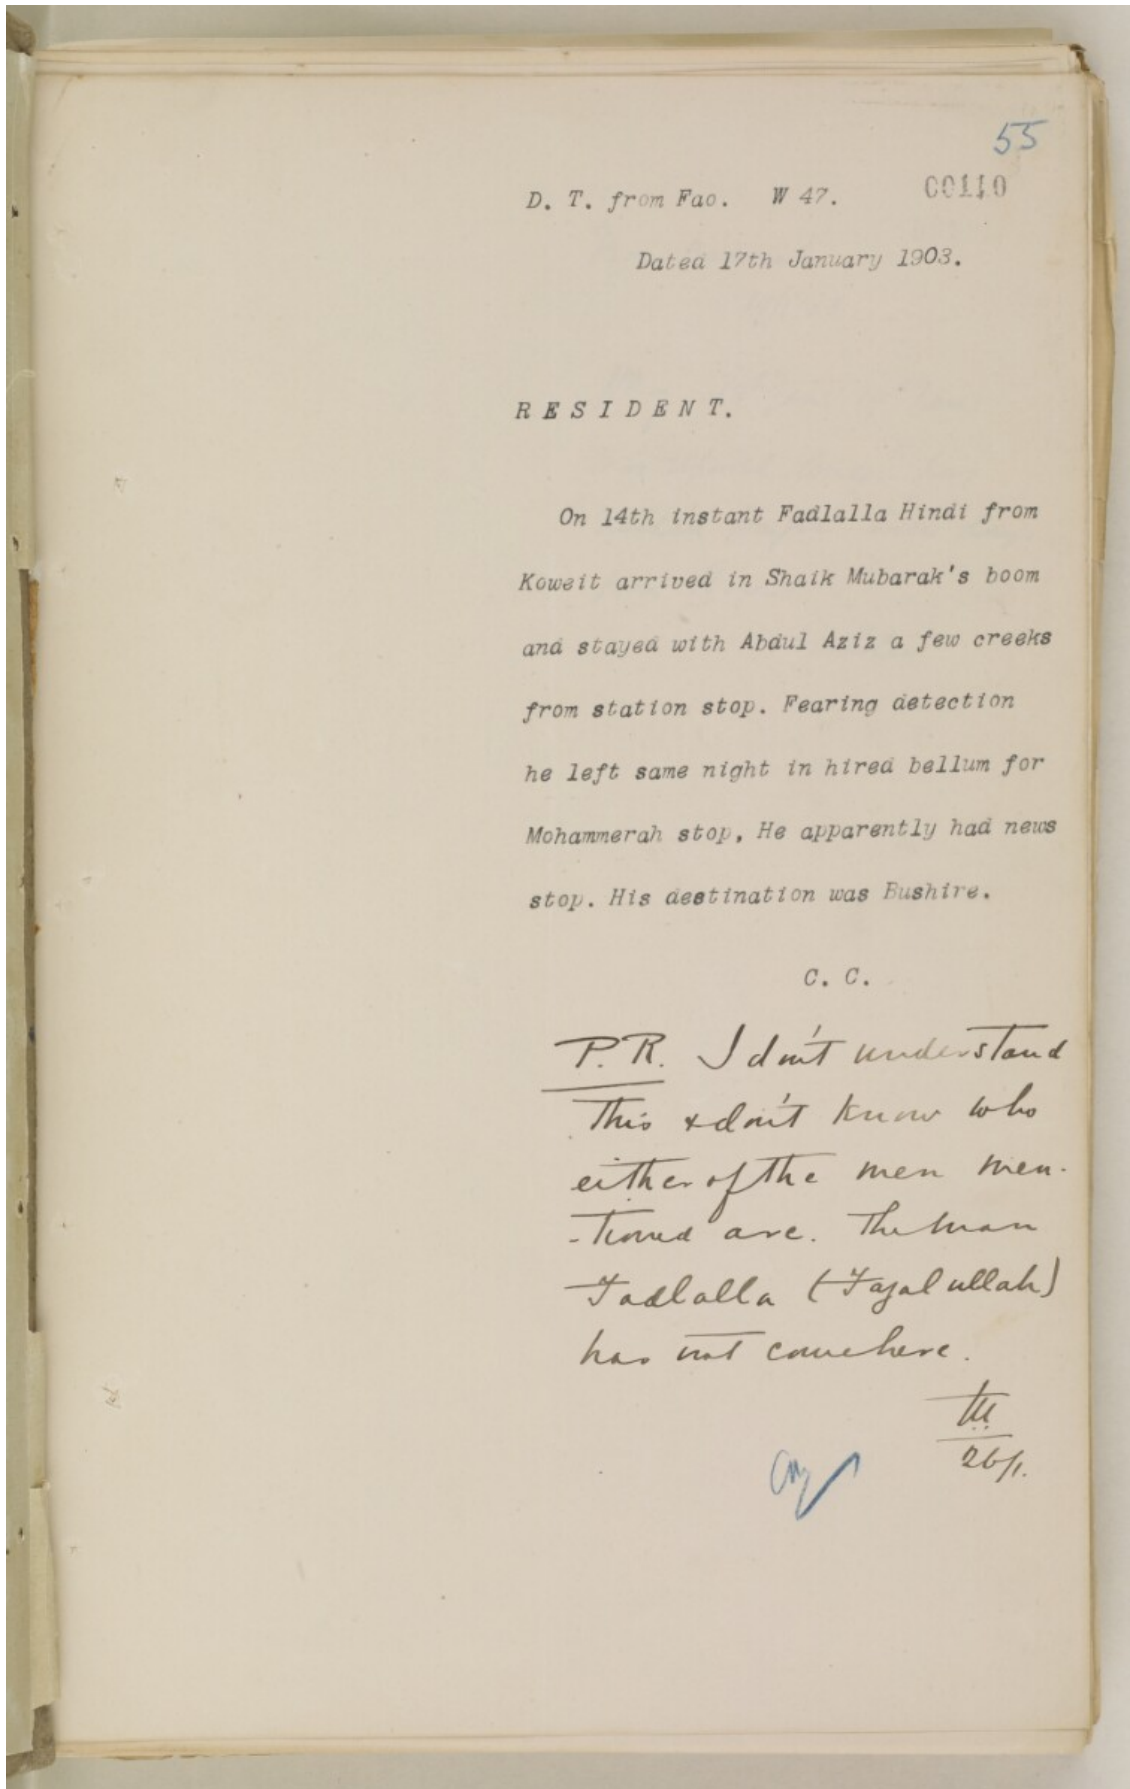 55
00110
D. T. from Fao. W 47.
Dated 17th January 1903.
RESIDENT.
On 14th instant Fadlalla Hindi from
Koweit arrived in Shaik Mubarak's boom
and stayed with Abdul Aziz a few creeks
from station stop. Fearing detection
he left same night in hired bellum for
Mohammerah stop, He apparently had news
stop. His destination was Bushire.
C. C.
P.R. I don't understand
this & don't know who
either of the men men-
-tioned are. The man
Fadlalla (Fazalullah)
has not come here.
26/1.